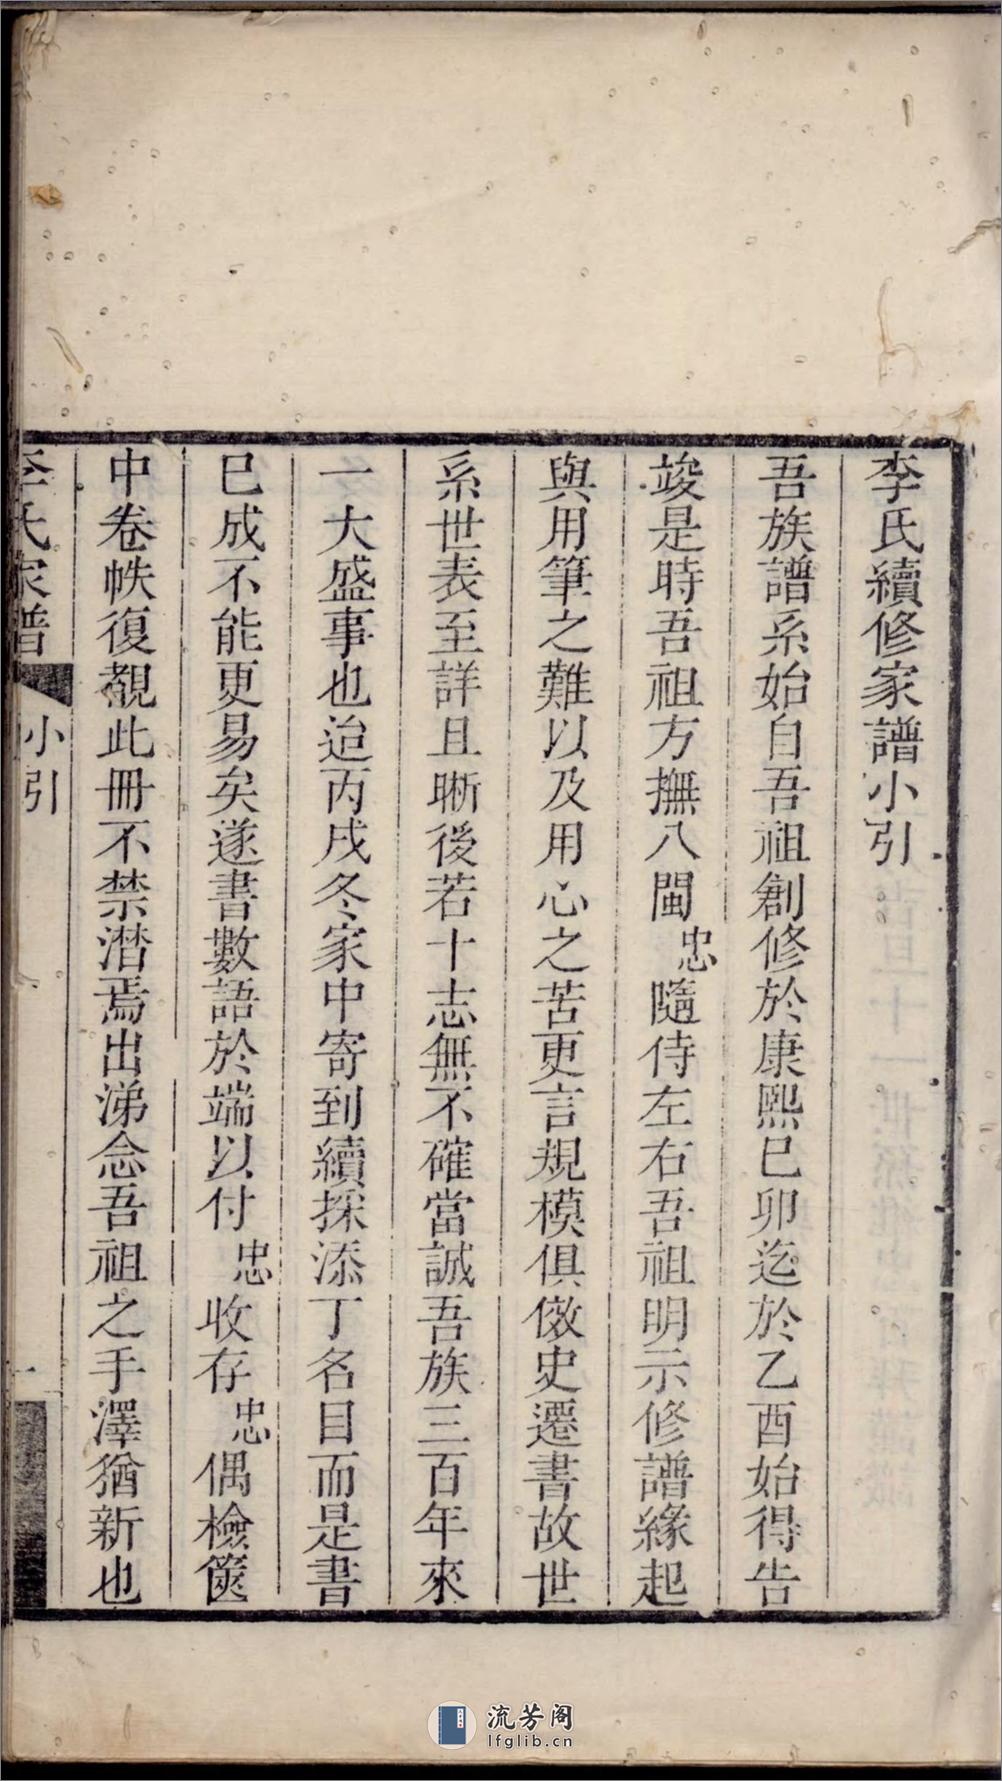 李氏續修家譜小引
吾族譜系始自吾祖創修於康熙巳卯迄於乙酉始得告
竣是時吾祖方撫八閩忠隨侍左右吾祖明示修譜緣起
與用筆之難以及用心之苦更言規模俱倣史遷書故世
系世表至詳且晰後若十志無不確當誠吾族三百年來
一大盛事也迨丙戌冬家中寄到續採添丁名目而是書
巳成不能更易矣遂書數語於端以付忠收存忠偶檢篋
中卷帙復覩此冊不禁潸焉出涕念吾祖之手澤猶新也
李氏家譜
小引
一
流芳阁
lfglib.cn